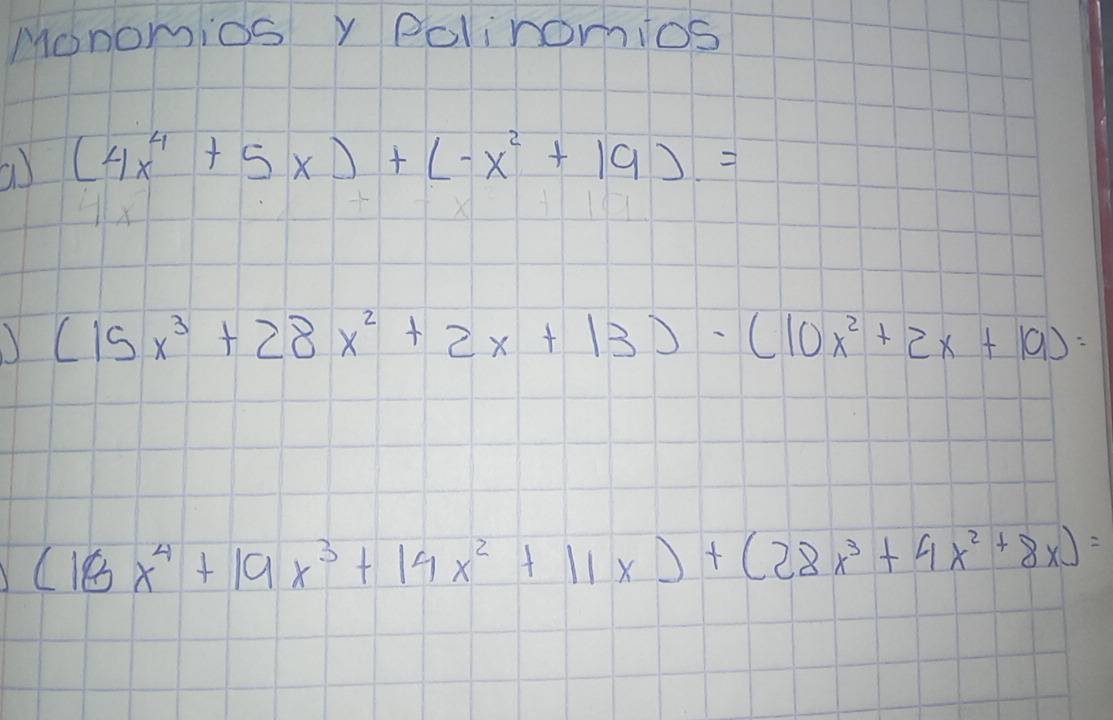 Monomios y Polinomios
a) (4x⁴ + 5x) + (-x² + 19) =
) (15x³ + 28x² + 2x + 13) - (10x² + 2x + 19) =
) (16x⁴ + 19x³ + 14x² + 11x) + (28x³ + 4x² + 8x) =